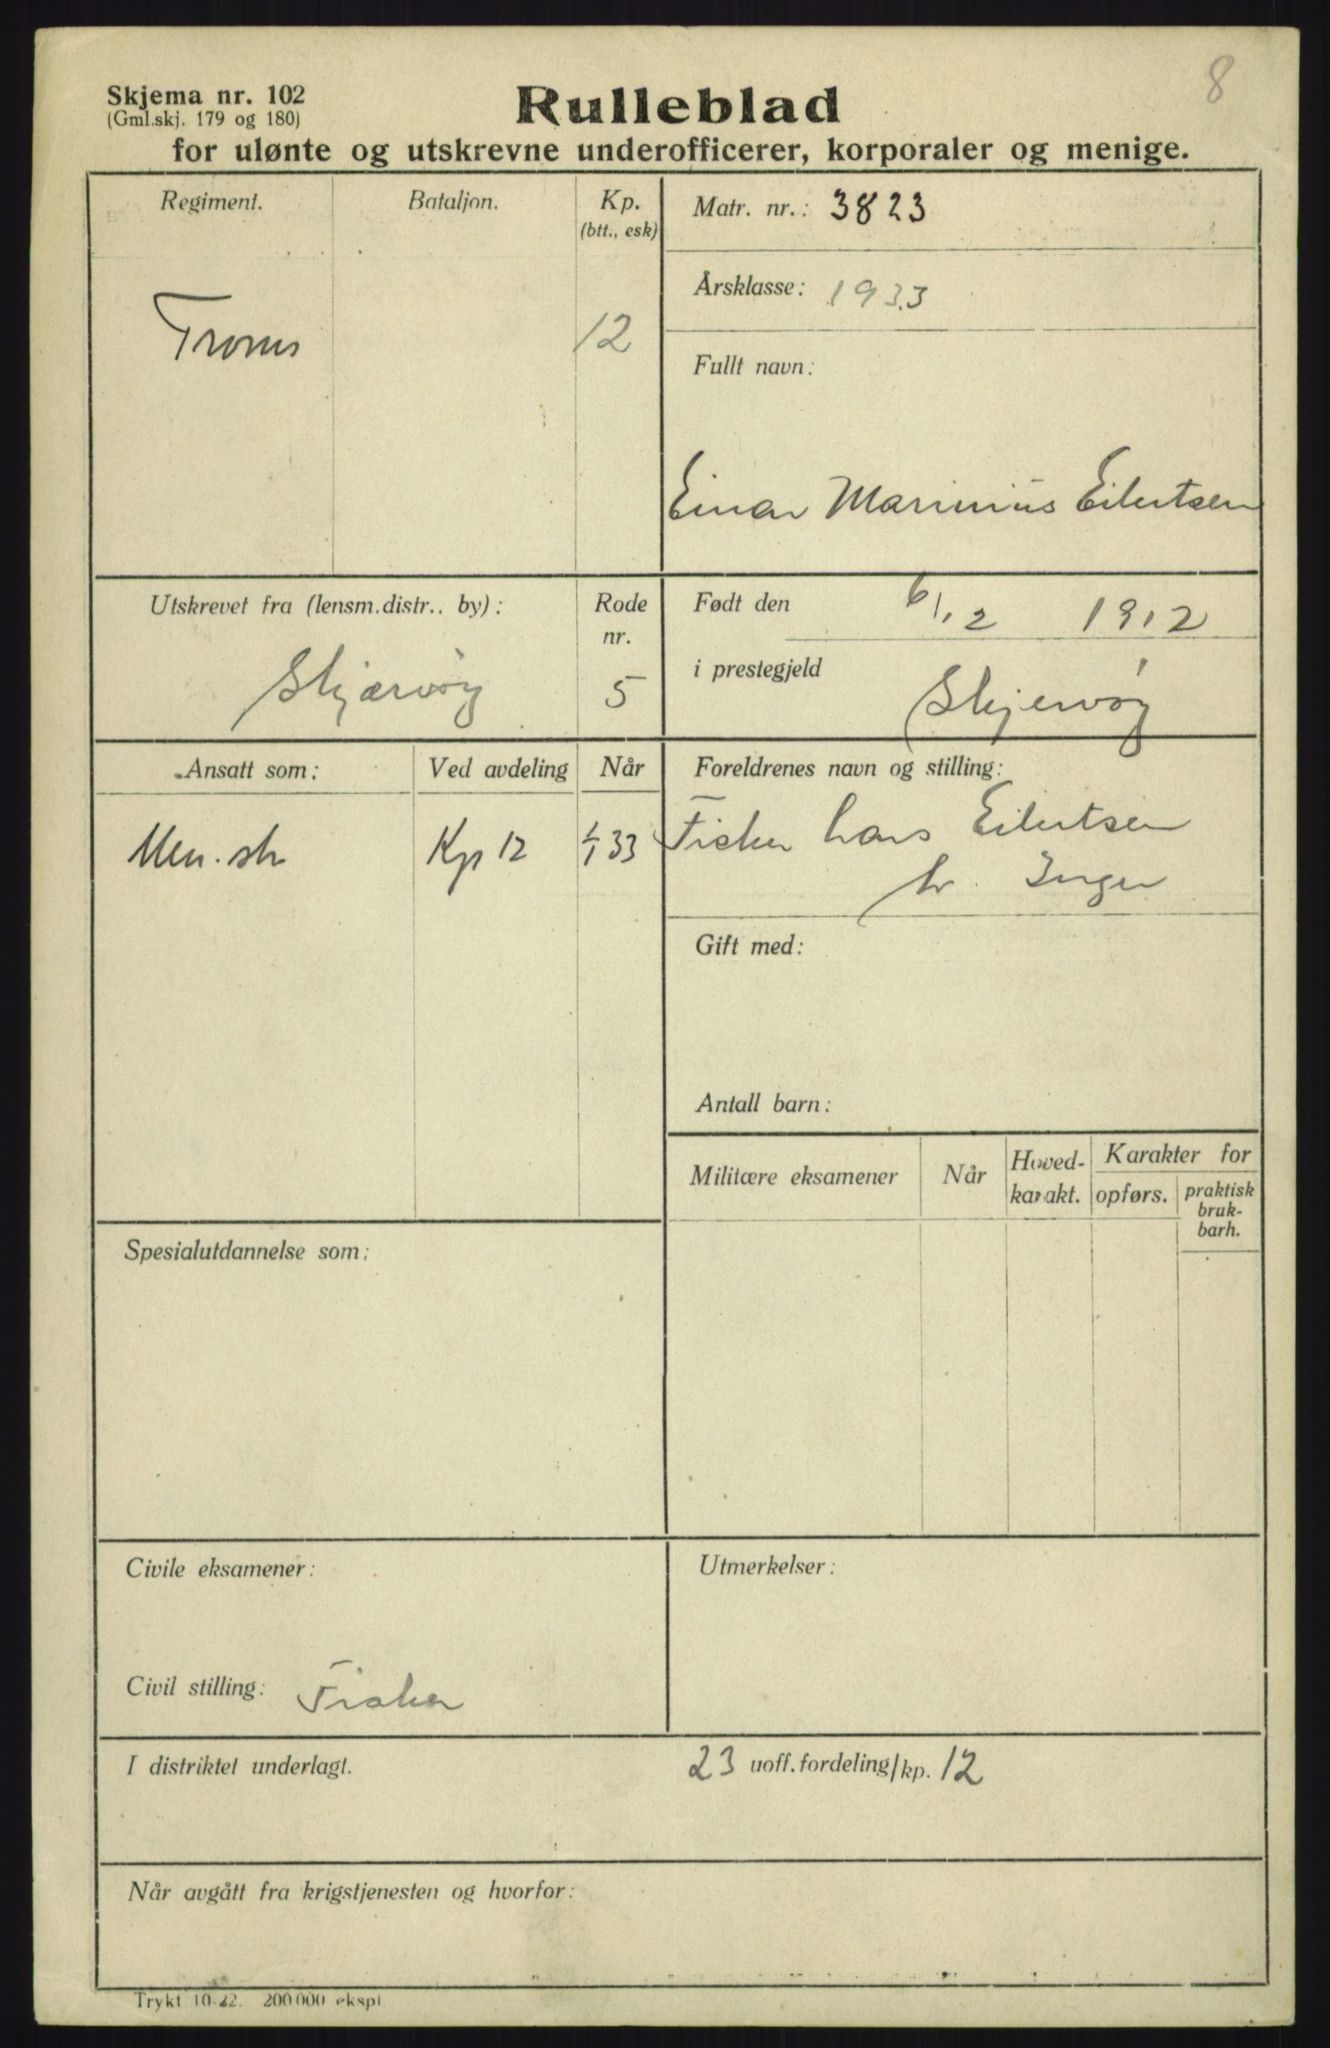 8
Skjema nr. 102
(Gml.skj. 179 og 180)
Rulleblad
for ulønte og utskrevne underofficerer, korporaler og menige.
Regiment.
Bataljon.
Kp.
(btt., esk)
Troms
12
Matr. nr.: 3823
Årsklasse: 1933
Fullt navn:
Einar Marinius Eilertsen
Utskrevet fra (lensm.distr.. by):
Skjærvøy
Rode
nr.
5
Født den 6/12 1912
i prestegjeld
Skjervøy
Ansatt som:
Ved avdeling
Når
Men. str
Kp 12
1/1 33
Foreldrenes navn og stilling:
Fisker Lars Eilertsen
h. Inger
Gift med:
Antall barn:
Militære eksamener
Når
Hoved-
karakt.
Karakter for
opførs.
praktisk
bruk-
barh.
Spesialutdannelse som:
Civile eksamener:
Civil stilling: Fisker
Utmerkelser:
I distriktet underlagt.
23 uoff.fordeling/kp. 12
Når avgått fra krigstjenesten og hvorfor:
Trykt 10-22. 200 000 ekspl.